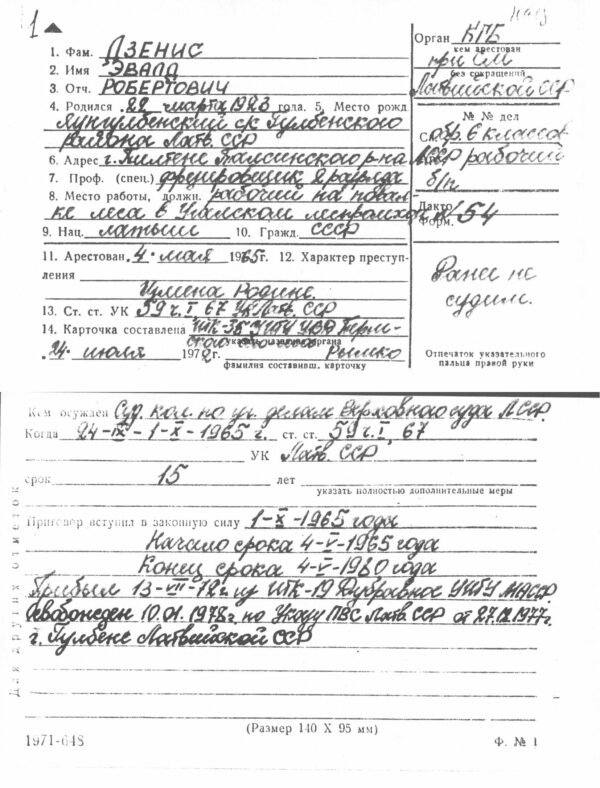 1
1. Фам. ДЗЕНИС
2. Имя ЭВАЛД
3. Отч. РОБЕРТОВИЧ
4. Родился 22 марта 1923 года. 5. Место рожд
Яунгулбенский с/с Гулбенского
района Латв. ССР
6. Адрес г. Пилтене Талсинского р-на
7. Проф. (спец.) фрезировщик 2 разряда
8. Место работы, должн. рабочий на повал-
ке леса в Угалском леспромхозе
9. Нац. латыш 10. Гражд. СССР
11. Арестован 4 мая 1965г. 12. Характер преступ-
ления
Измена Родине
13. Ст. ст. УК 59 ч. I, 67 УК Латв. ССР
14. Карточка составлена ИТК-35 УИТУ УВД Перм-
указать название органа
24 июля 1972г. Рымко
фамилия составивш. карточку
Орган КГБ
кем арестован
при СМ
без сокращений
Латвийской ССР
№ № дел
обр. 6 классов
рабочий
б/п
Дакто
Форм. 54
Ранее не
судим.
Отпечаток указательного
пальца правой руки
Кем осужден Суд. кол. по уг. делам Верховного суда Л ССР.
Когда 24-IX - 1-X-1965 г. ст. ст. 59 ч. I, 67
УК Латв. ССР
срок 15 лет
указать полностью дополнительные меры
Приговор вступил в законную силу 1-X-1965 года
Начало срока 4-V-1965 года
Конец срока 4-V-1980 года
Прибыл 13-VII-72г. из ИТК-19 Дубравное УИТУ МАССР
Освобожден 10.01.1978г по Указу ПВС Латв. ССР от 27.12.1977г.
г. Гулбене Латвийской ССР
Для других отметок
(Размер 140 X 95 мм)
1971-648
Ф. № 1